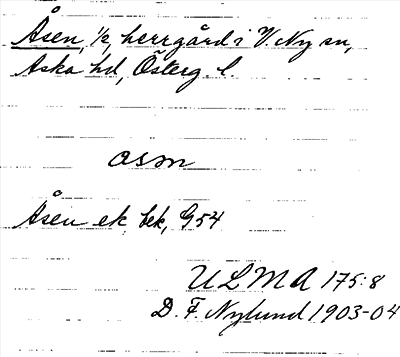 Åsen, 1/2, herrgård i V. Ny sn,
Aska hd, Österg. l.
åsm
Åsen ek. bek, G54
ULMA 175:8
D. F. Nylund 1903-04